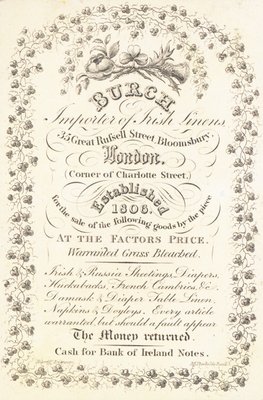 BURCH
Importer of Irish Linens
35 Great Russell Street, Bloomsbury,
London.
(Corner of Charlotte Street,)
Established
1806.
for the sale of the following goods by the piece
AT THE FACTORS PRICE.
Warranted Grass Bleached.
Irish & Russia Sheetings, Diapers,
Huckabacks, French Cambrics, &c.
Damask & Diaper Table Linen,
Napkins & Doyleys. Every article
warranted, but should a fault appear
The Money returned.
Cash for Bank of Ireland Notes.